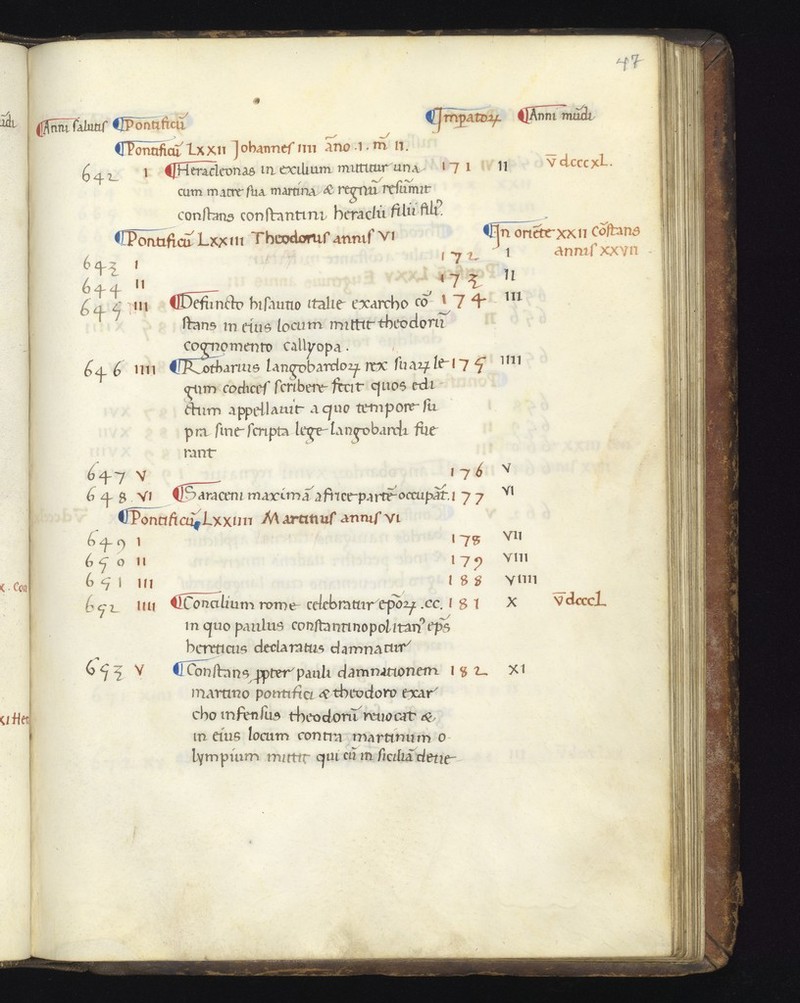 47
Anni salutis Pontificū Impatoꝝ Anni mūdi
Pontificū Lxxii Johannes iiii āno .1. m̄ ii.
642 1 Heracleonas in exilium mittitur una 171 ii v̄dcccxL.
cum matre sua martina & regnū resumit
constans constantini heraclii filii fili⁹.
Pontificū Lxxiii Theodorus annis vi In oriēte xxii Cōstans
annis xxvii
643 i 172 i
644 ii 173 ii
645 iii Defuncto hisautio italie exarcho cō 174 iii
stans in eius locum mittit theodorū
cognomento callyopa.
646 iiii Rotharius langobardoꝝ rex suaꝝ le 175 iiii
gum codices scribere fecit quos edi
ctum appellauit a quo tempore su
pra sine scripta lege langobardi fue
rant
647 v 176 v
648 vi Saraceni maximā africe partē occupāt. 177 vi
Pontificū Lxxiiii Martinus annis vi
649 i 178 vii
650 ii 179 viii
651 iii 188 viiii
652 iiii Concilium rome celebratur ep̄oꝝ .cc. 181 x v̄dcccL
in quo paulus constantinopolitan⁹ ep̄s
hereticus declaratus damnatur
653 v Constans ꝓpter pauli damnationem 182 xi
martino pontifici & theodoro exar
cho infensus theodorū reuocat &
in eius locum contra martinum o
lympium mittit qui cū in siciliā deue